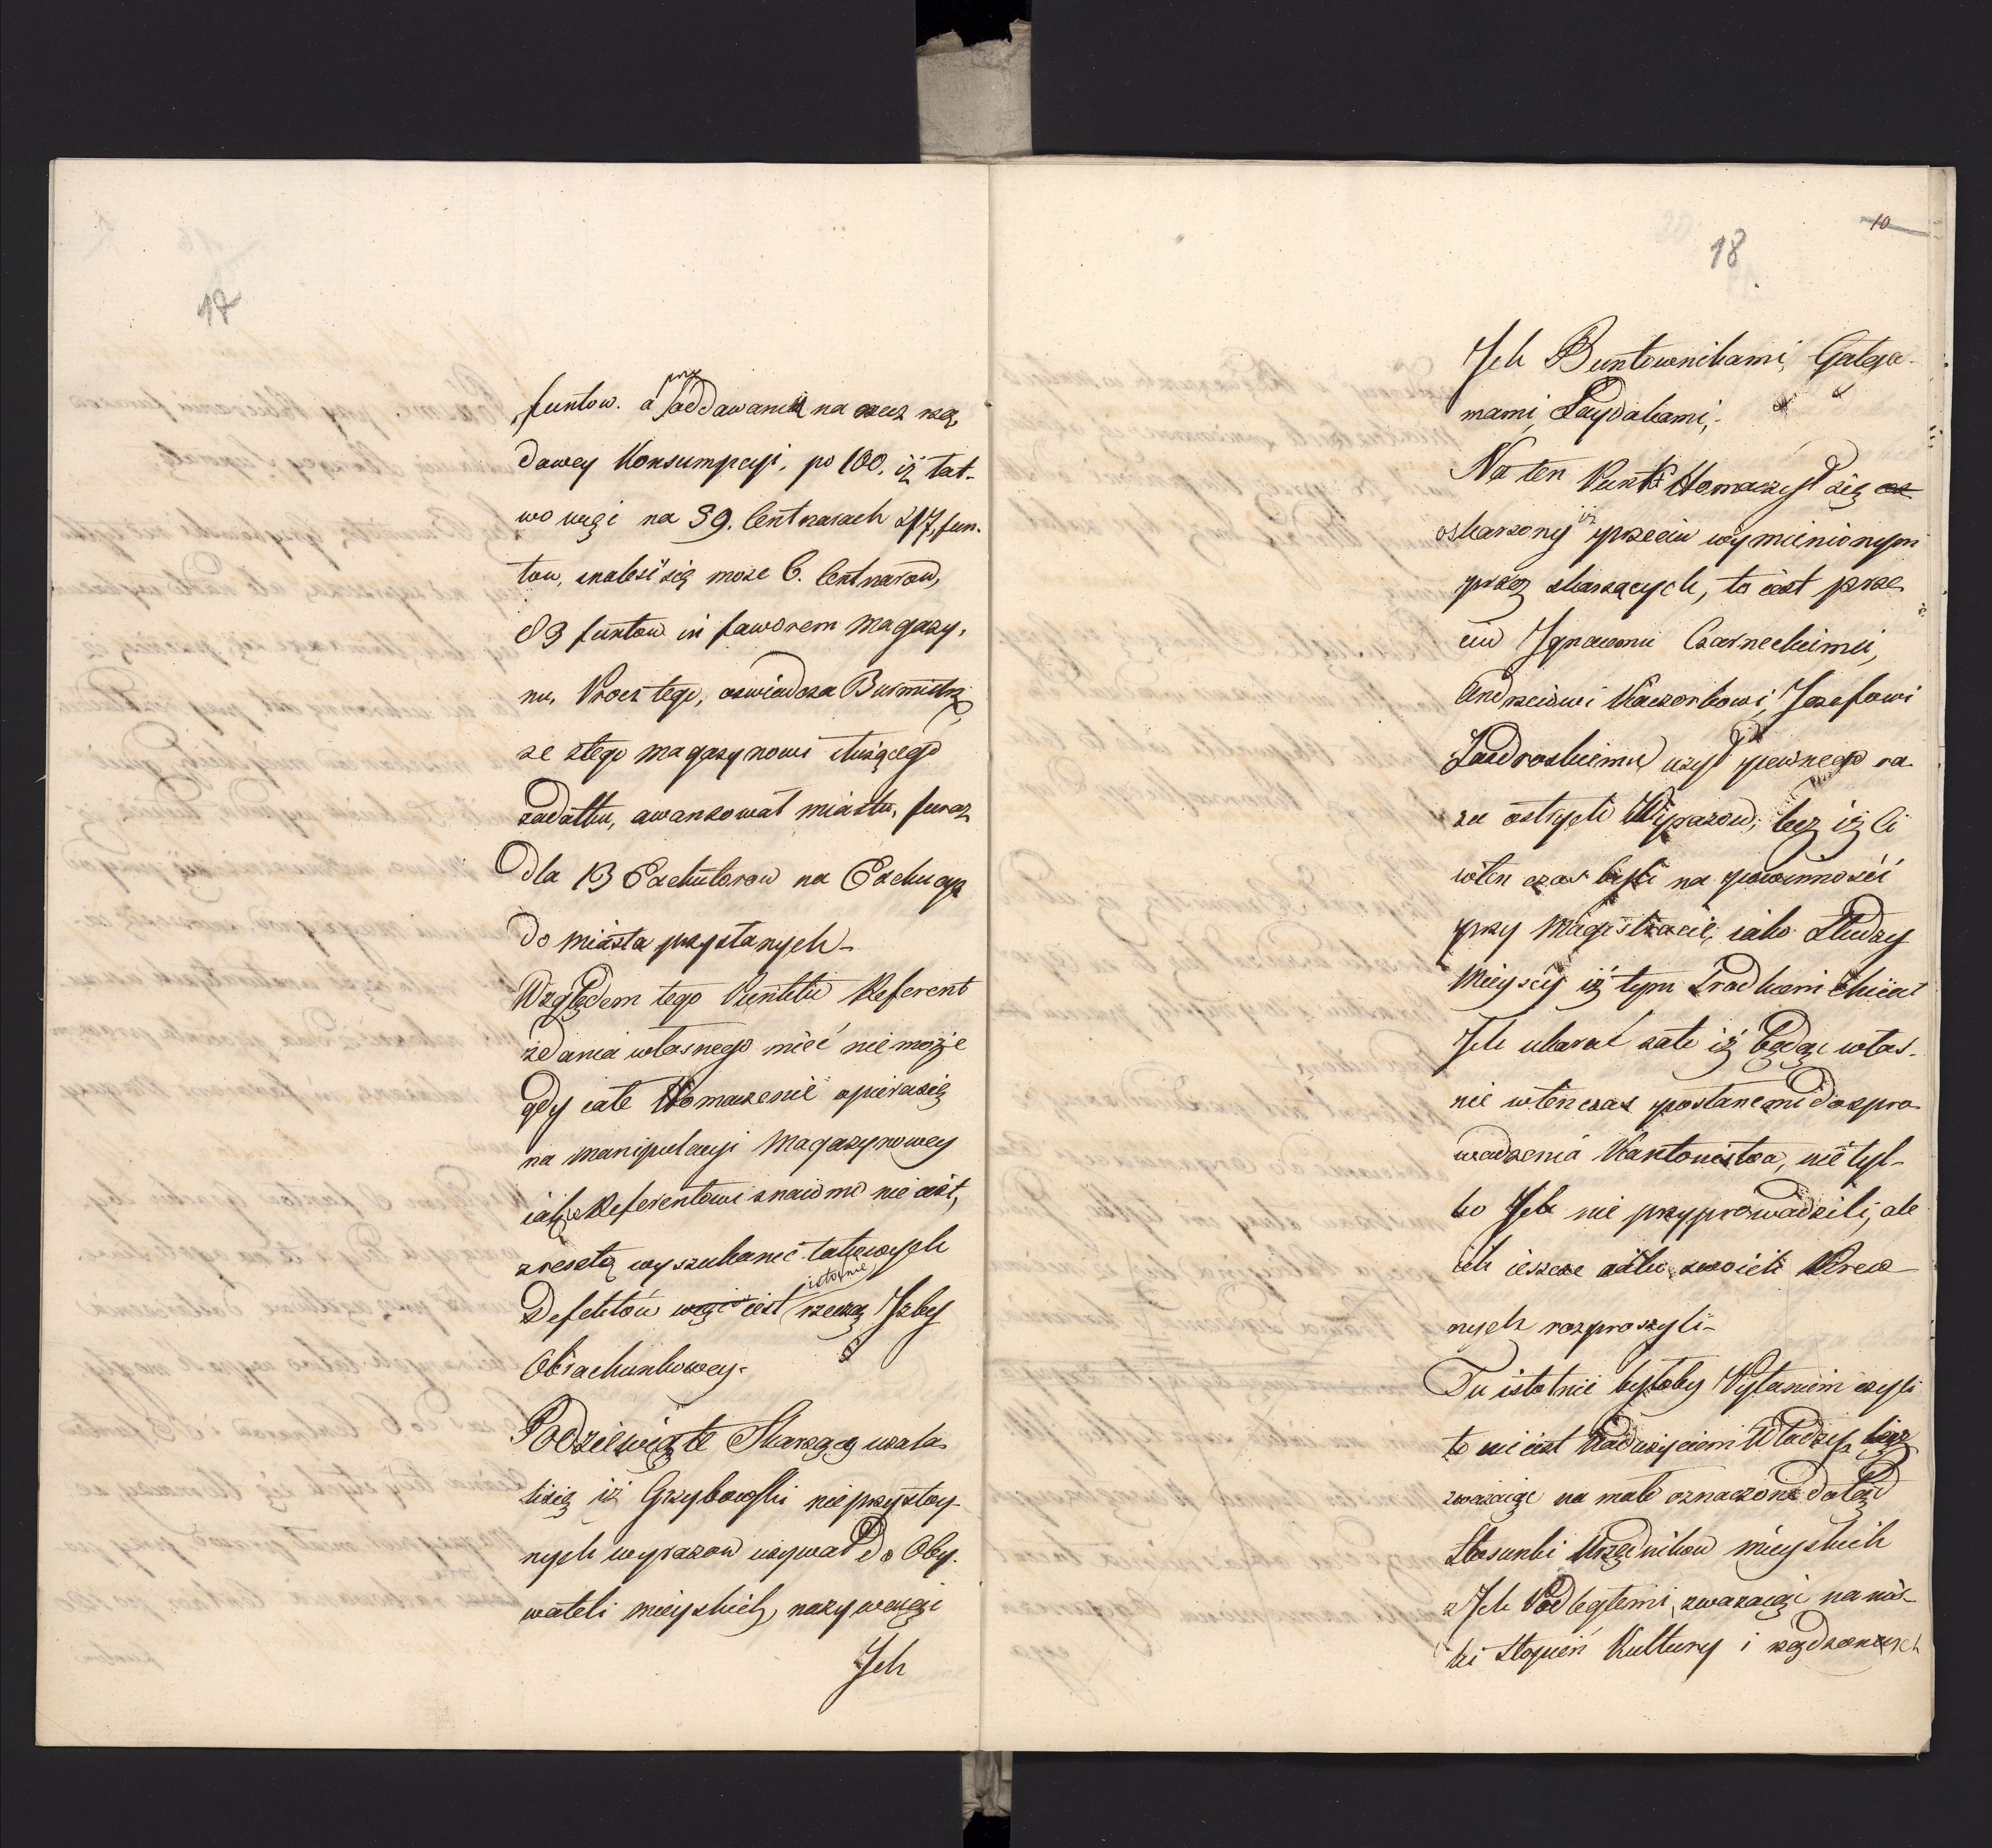 17
funtow. a przy oddawaniu na rzecz rzą
dowey Konsumpcyi, po 100, iż łat-
wo więc na 39. Centnarach 217 fun.
tow, znaleść się może 6. Centnarow,
83 funtow in faworem magazy,
nu, Procz tego, oswiadcza Burmistrz
ze z tego magazynowi służącego
zadatku, awansował miastu, furaz
dla 13 Exekutorow na Exekucyą
do miasta przysłanych-
Względem tego Punktu Referent
zdania własnego mieć nie może
gdy całe tłomaczenie opiera się
na manipulacyi Magazynowey
iaka Referentowi znaiomo nie iest,
zresztą wyszukanie takowych
Defektów więc iest istotnie rzeczą Izby
Obrachunkowey.
Podziewiąte Skarzący uzala
li się iż Grzybowski nieprzystoy-
nych wyrazow uzywał do Oby-
wateli mieyskich, nazywaiąc
Ich
10
18
Ich Buntownikami, Gałga-
nami, Łaydakami,
Na ten Punkt tłomaczył się os
oskarzony iż przeciw wymienionym
przez skarzących, to iest prze
ciw Ignacemu Czarneckimu,
Andrzeiowi Kaczorkowi, Jozefowi
Zazdroskiemu uzył pewnego ra
zu ostrych Wyrazow, lecz iż Ci
w ten czas byli na powinności
przy Magistracie, iako Słudzy
Mieyscy iż tym Srodkiem chciał
Ich ukarać zato iż będąc włas-
nie w ten czas posłanemi do spro
wadzenia Kantonistow, nie tyl-
ko Ich nie przyprowadzili, ale
ich ieszcze iako swoich Krew
nych rozproszyli-
Tu istotnie byłoby Pytaniem czyli
to nie iest Nadużyciem Władzy, lecz
zwazaiąc na małe oznaczone dotąd
Stosunki Urzędnikow mieyskich
z Ich Podległemi, zwazaiąc na niz-
ki Stopień Kultury i